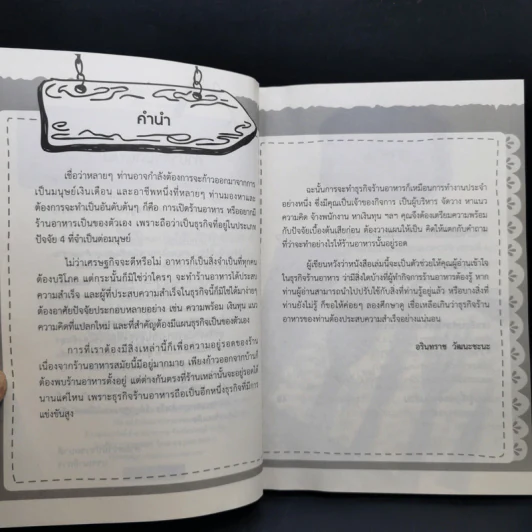 คำนำ
เชื่อว่าหลายๆ ท่านอาจกำลังต้องการจะก้าวออกมาจากการ
เป็นมนุษย์เงินเดือน และอาชีพหนึ่งที่หลายๆ ท่านมองหาและ
ต้องการจะทำเป็นอันดับต้นๆ ก็คือ การเปิดร้านอาหาร หรืออยากมี
ร้านอาหารเป็นของตัวเอง เพราะถือว่าเป็นธุรกิจที่อยู่ในประเภท
ปัจจัย 4 ที่จำเป็นต่อมนุษย์
ไม่ว่าเศรษฐกิจจะดีหรือไม่ อาหารก็เป็นสิ่งจำเป็นที่ทุกคน
ต้องบริโภค แต่กระนั้นก็มิใช่ว่าใครๆ จะทำร้านอาหารได้ประสบ
ความสำเร็จ และผู้ที่ประสบความสำเร็จในธุรกิจนี้ก็มิใช่ได้มาง่ายๆ
ต้องอาศัยปัจจัยประกอบหลายอย่าง เช่น ความพร้อม เงินทุน แนว
ความคิดที่แปลกใหม่ และที่สำคัญต้องมีแผนธุรกิจเป็นของตัวเอง
การที่เราต้องมีสิ่งเหล่านี้ก็เพื่อความอยู่รอดของร้าน
เนื่องจากร้านอาหารสมัยนี้มีอยู่มากมาย เพียงก้าวออกจากบ้านก็
ต้องพบร้านอาหารตั้งอยู่ แต่ต่างกันตรงที่ร้านเหล่านั้นจะอยู่รอดได้
นานแค่ไหน เพราะธุรกิจร้านอาหารถือเป็นอีกหนึ่งธุรกิจที่มีการ
แข่งขันสูง
ฉะนั้นการจะทำธุรกิจร้านอาหารก็เหมือนการทำงานประจำ
อย่างหนึ่ง ซึ่งมีคุณเป็นเจ้าของกิจการ เป็นผู้บริหาร จัดวาง หาแนว
ความคิด จ้างพนักงาน หาเงินทุน ฯลฯ คุณจึงต้องเตรียมความพร้อม
กับปัจจัยเบื้องต้นเสียก่อน ต้องวางแผนให้เป็น คิดให้แตกกับคำถาม
ที่ว่าจะทำอย่างไรให้ร้านอาหารนั้นอยู่รอด
ผู้เขียนหวังว่าหนังสือเล่มนี้จะเป็นตัวช่วยให้คุณผู้อ่านเข้าใจ
ในธุรกิจร้านอาหาร ว่ามีสิ่งใดบ้างที่ผู้ทำกิจการร้านอาหารต้องรู้ หาก
ผู้อ่านสามารถนำไปปรับใช้กับสิ่งที่ท่านรู้อยู่แล้ว หรือบางสิ่งที่
ท่านยังไม่รู้ ก็ขอให้ค่อยๆ ลองศึกษาดู เชื่อเหลือเกินว่าธุรกิจร้าน
อาหารของท่านต้องประสบความสำเร็จอย่างแน่นอน
อรินทราช วัฒนะชะนะ